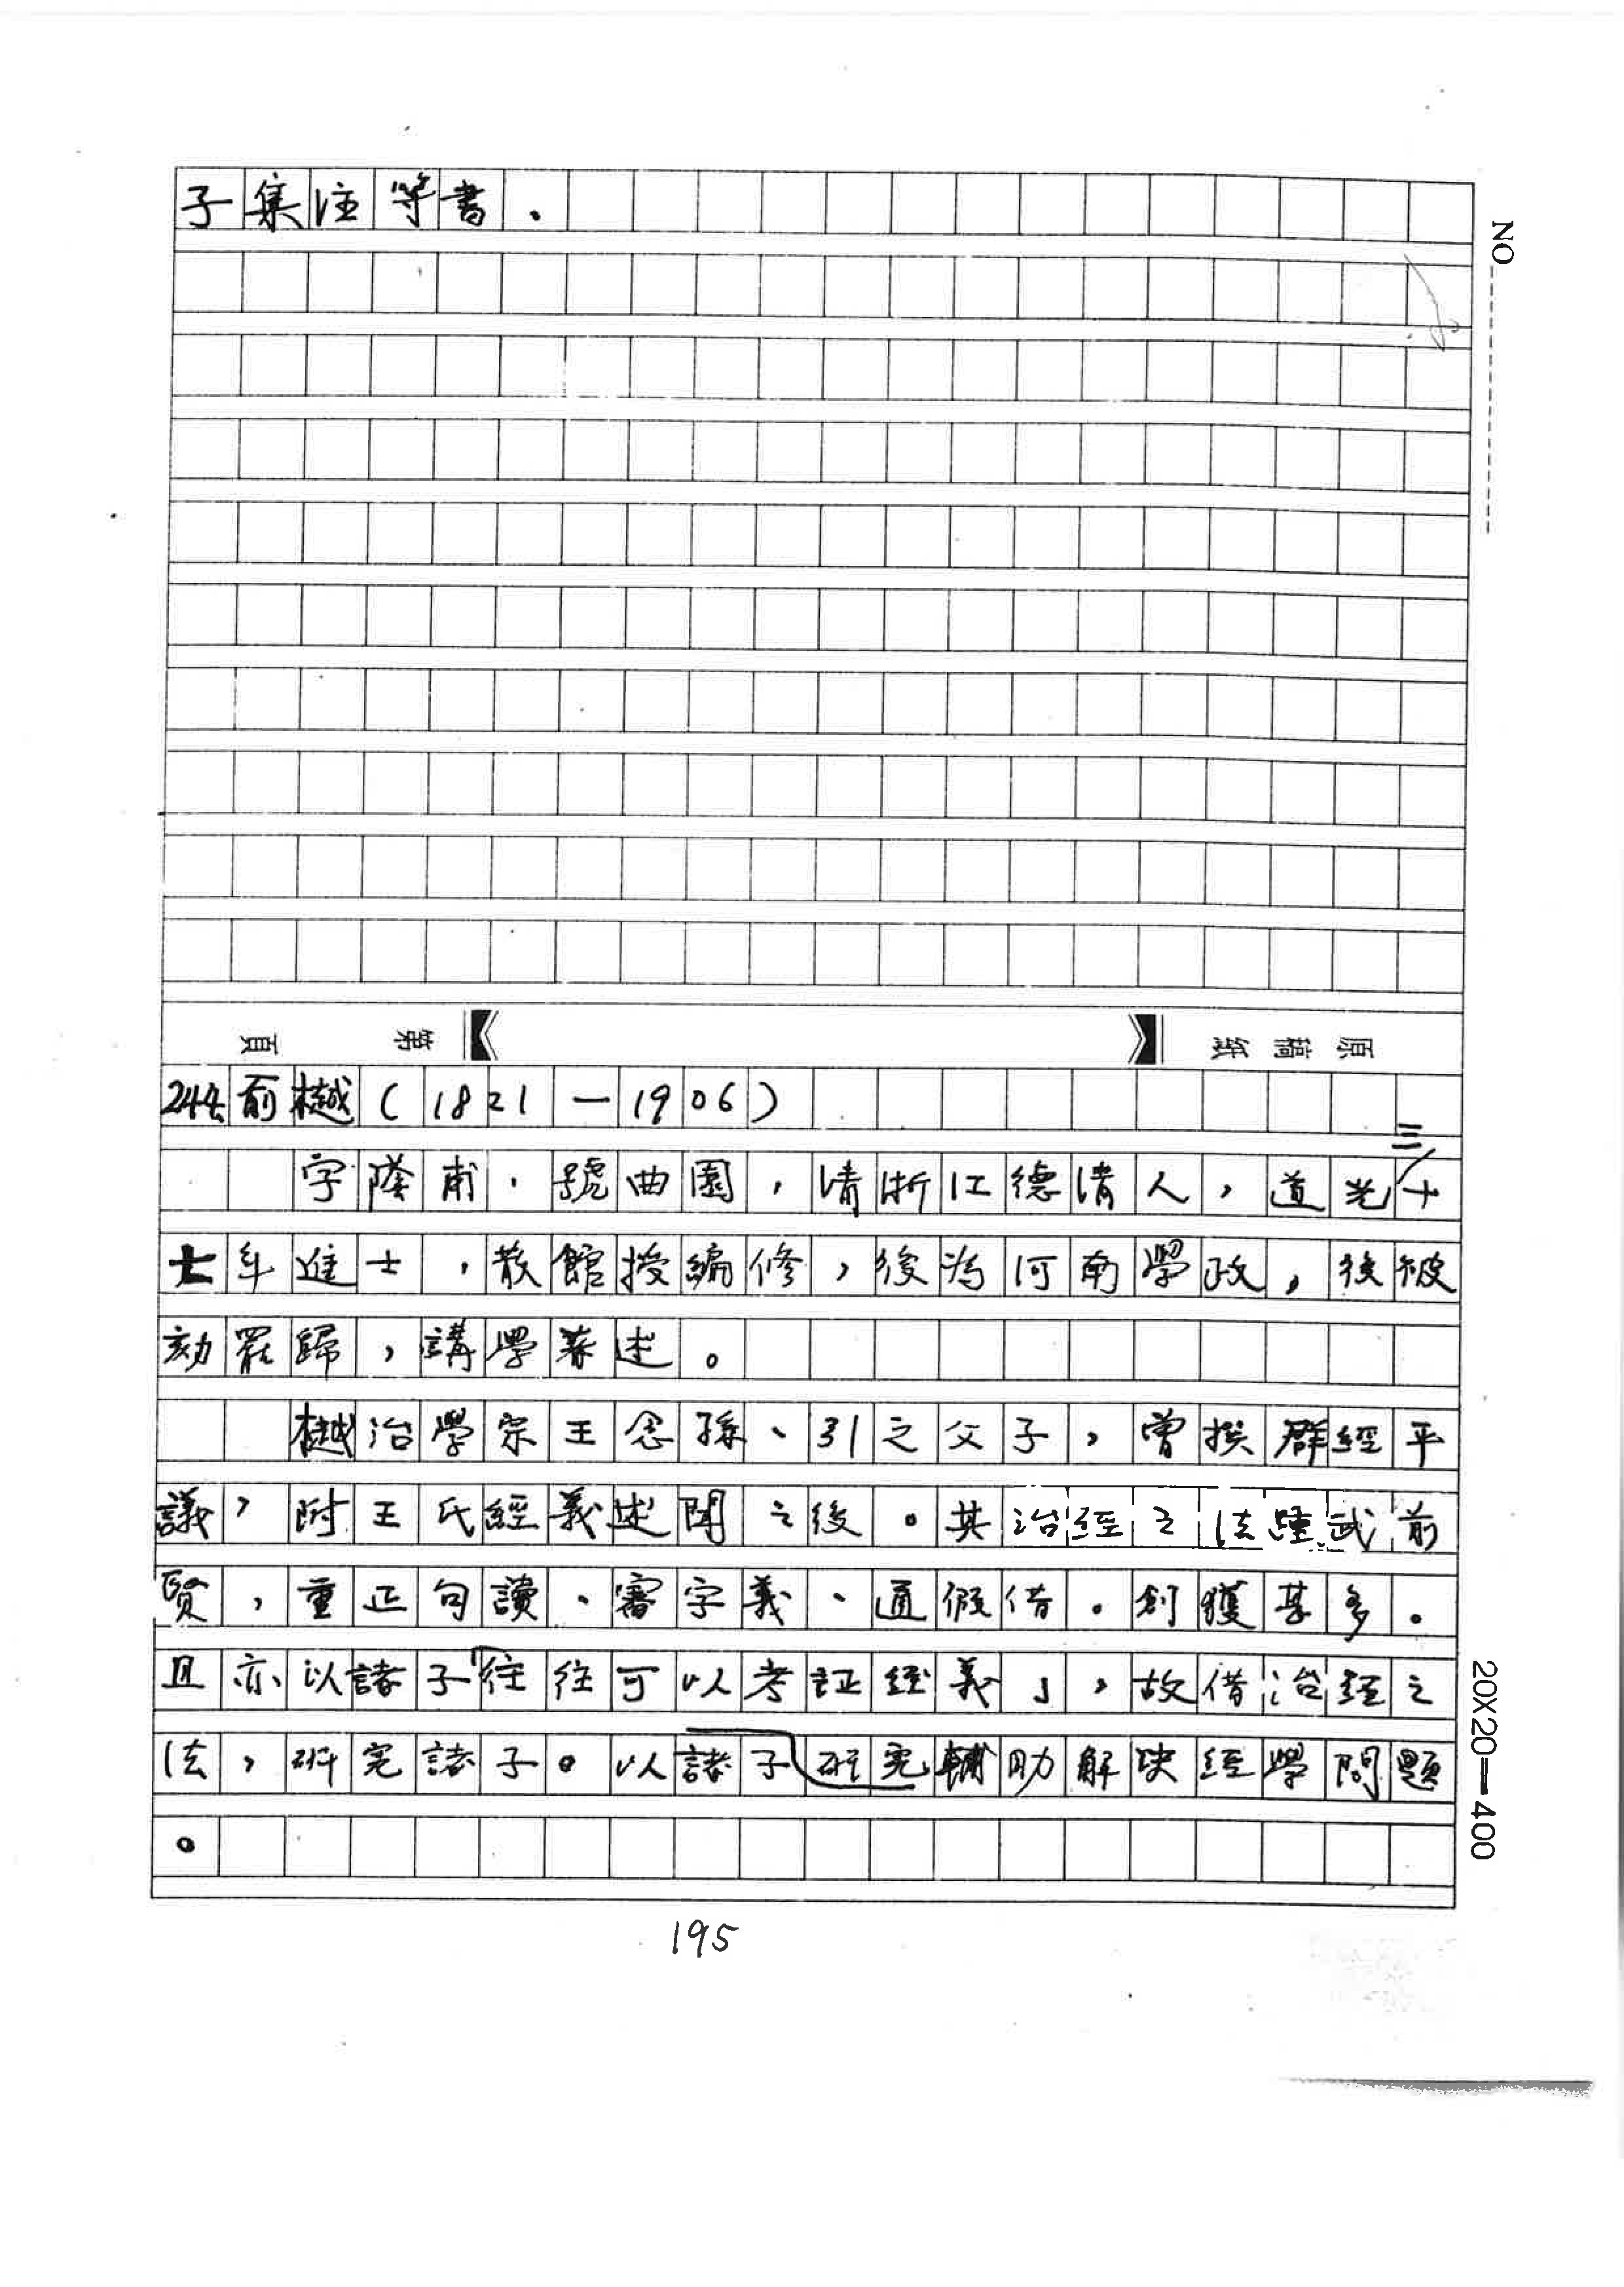 子集注等書、
NO
原稿紙 第 頁
244俞樾(1821—1906)
三
字蔭甫,號曲園,清浙江德清人,道光十
七年進士,散館授編修,後為河南學政,後被
劾罷歸,講學著述。
樾治學宗王念孫、引之父子,曾撰群經平
議,附王氏經義述聞之後。其治經之法踵武前
賢,重正句讀、審字義、通假借。創獲甚多。
且亦以諸子「往往可以考証經義」,故借治經之
法,研究諸子。以諸子研究輔助解決經學問題
。
20X20=400
195